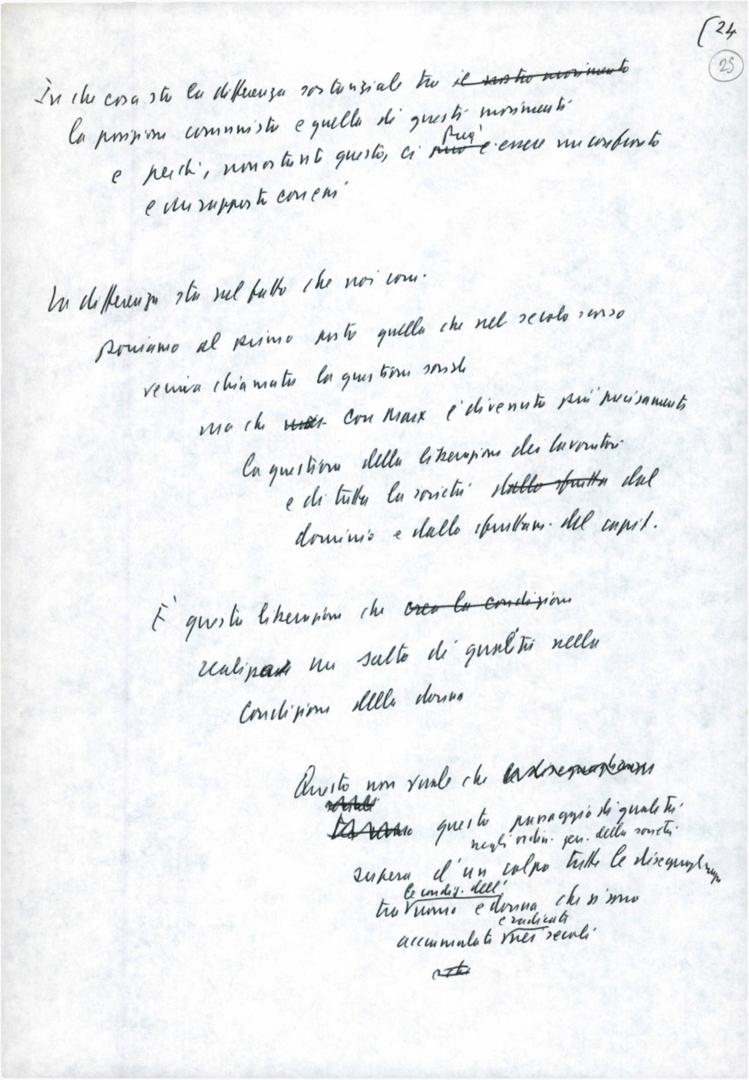 [24
25
In che cosa sta la differenza sostanziale tra il nostro movimento
la posizione comunista e quella di questi movimenti
e perché, nonostante questo, ci può essere un confronto
e un rapporto con essi
La differenza sta nel fatto che noi com.
poniamo al primo posto quella che nel secolo scorso
veniva chiamata la questione sociale
ma che con Marx è divenuta più precisamente
la questione della liberazione dei lavoratori
e di tutta la società dallo sfrutta dal
dominio e dallo sfruttam. del capit.
È questa liberazione che crea la condizione
realizza un salto di qualità nella
condizione della donna
Questo non vuole che le diseguaglianze
questo passaggio di qualità
negli ordin. gen. della società
supera d'un colpo tutte le diseguaglianze
le condiz. dell'
tra uomo e donna che si sono
e radicate
accumulate nei secoli